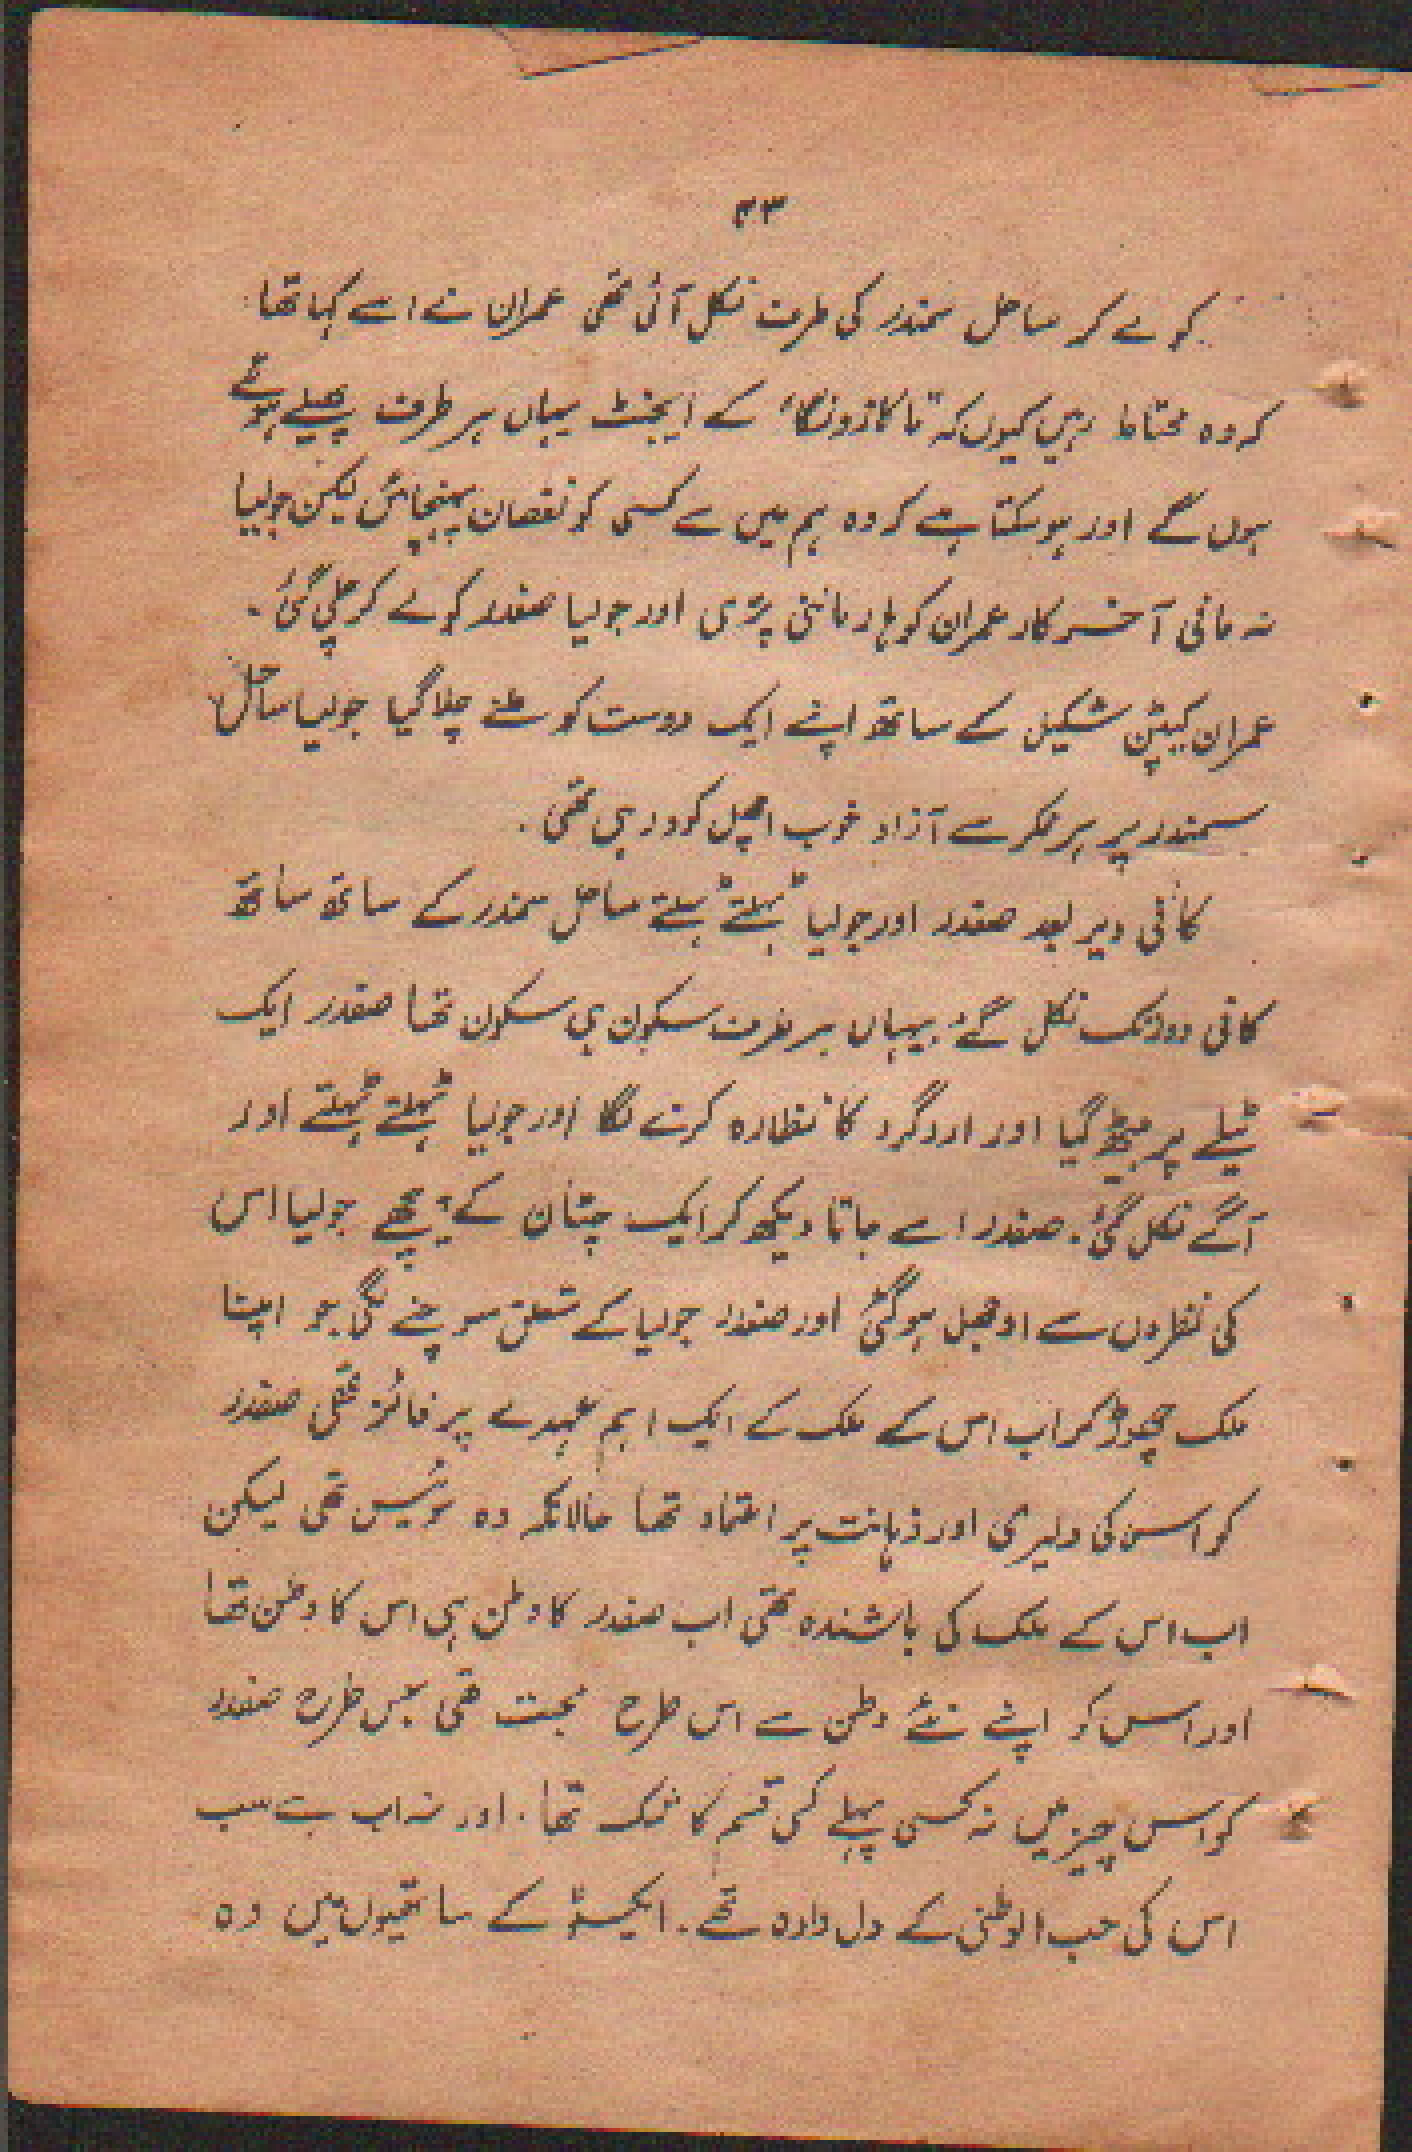 ۳۳
کو لے کر ساحل سمندر کی طرف نکل آئی تھی عمران نے اسے کہا تھا
کہ وہ محتاط رہیں کیوں کہ "ناکازونگا" کے ایجنٹ یہاں ہر طرف پھیلے ہوئے
ہوں گے اور ہو سکتا ہے کہ وہ ہم میں سے کسی کو نقصان پہنچائیں لیکن جولیا
نہ مانی آخر کار عمران کو ہار ماننی پڑی اور جولیا صفدر کو لے کر چلی گئی۔
عمران کیپٹن شکیل کے ساتھ اپنے ایک دوست کو ملنے چلا گیا جولیا ساحل
سمندر پر ہر فکر سے آزاد خوب اچھل کود رہی تھی۔
کافی دیر بعد صفدر اور جولیا ٹہلتے ٹہلتے ساحل سمندر کے ساتھ ساتھ
کافی دور تک نکل گئے یہاں ہر طرف سکون ہی سکون تھا صفدر ایک
ٹیلے پر بیٹھ گیا اور اردگرد کا نظارہ کرنے لگا اور جولیا ٹہلتے ٹہلتے اور
آگے نکل گئی۔ صفدر اسے جاتا دیکھ کر ایک چٹان کے پیچھے جولیا اس
کی نظروں سے اوجھل ہوگئی اور صفدر جولیا کے متعلق سوچنے لگی جو اپنا
ملک چھوڑ کر اب اس کے ملک کے ایک اہم عہدے پر فائز تھی صفدر
کو اس کی دلیری اور ذہانت پر اعتماد تھا حالانکہ وہ سوئیس تھی لیکن
اب اس کے ملک کی باشندہ تھی اب صفدر کا وطن ہی اس کا وطن تھا
اور اس کو اپنے نئے وطن سے اس طرح محبت تھی جس طرح صفدر
کو اس چیز میں نہ کسی پہلے کسی قسم کا شک تھا۔ اور نہ اب ہے سب
اس کی حب الوطنی کے دل دادہ تھے۔ ایکسٹو کے ساتھیوں میں وہ